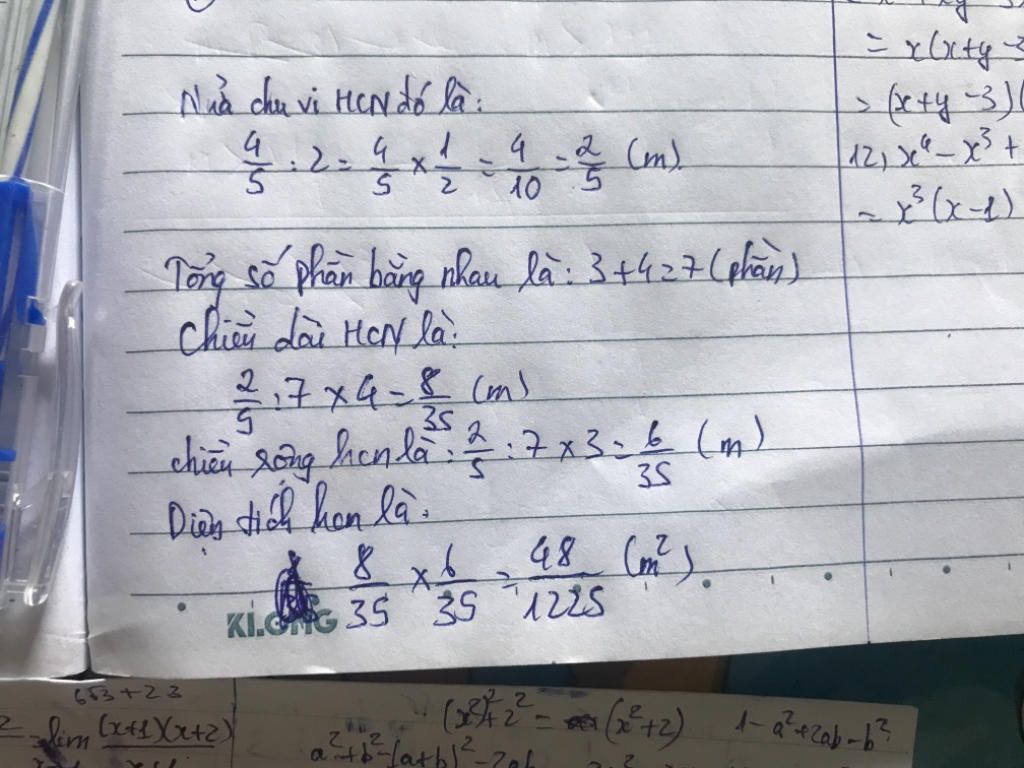 Nửa chu vi HCN đó là:
4/5 : 2 = 4/5 × 1/2 = 4/10 = 2/5 (m)
Tổng số phần bằng nhau là: 3 + 4 = 7 (phần)
Chiều dài HCN là:
2/5 : 7 × 4 = 8/35 (m)
chiều rộng hcn là: 2/5 : 7 × 3 = 6/35 (m)
Diện tích hcn là:
8/35 × 6/35 = 48/1225 (m²)
KLONG
= x(x+y-3
= (x+y-3)(
12, x⁴ - x³ +
= x³(x-1)
6√3 + 23
lim (x+1)(x+2)
(x²)²+2² = (x²+2) 1-a²+2ab-b²
a²+b²=(a+b)²-2ab